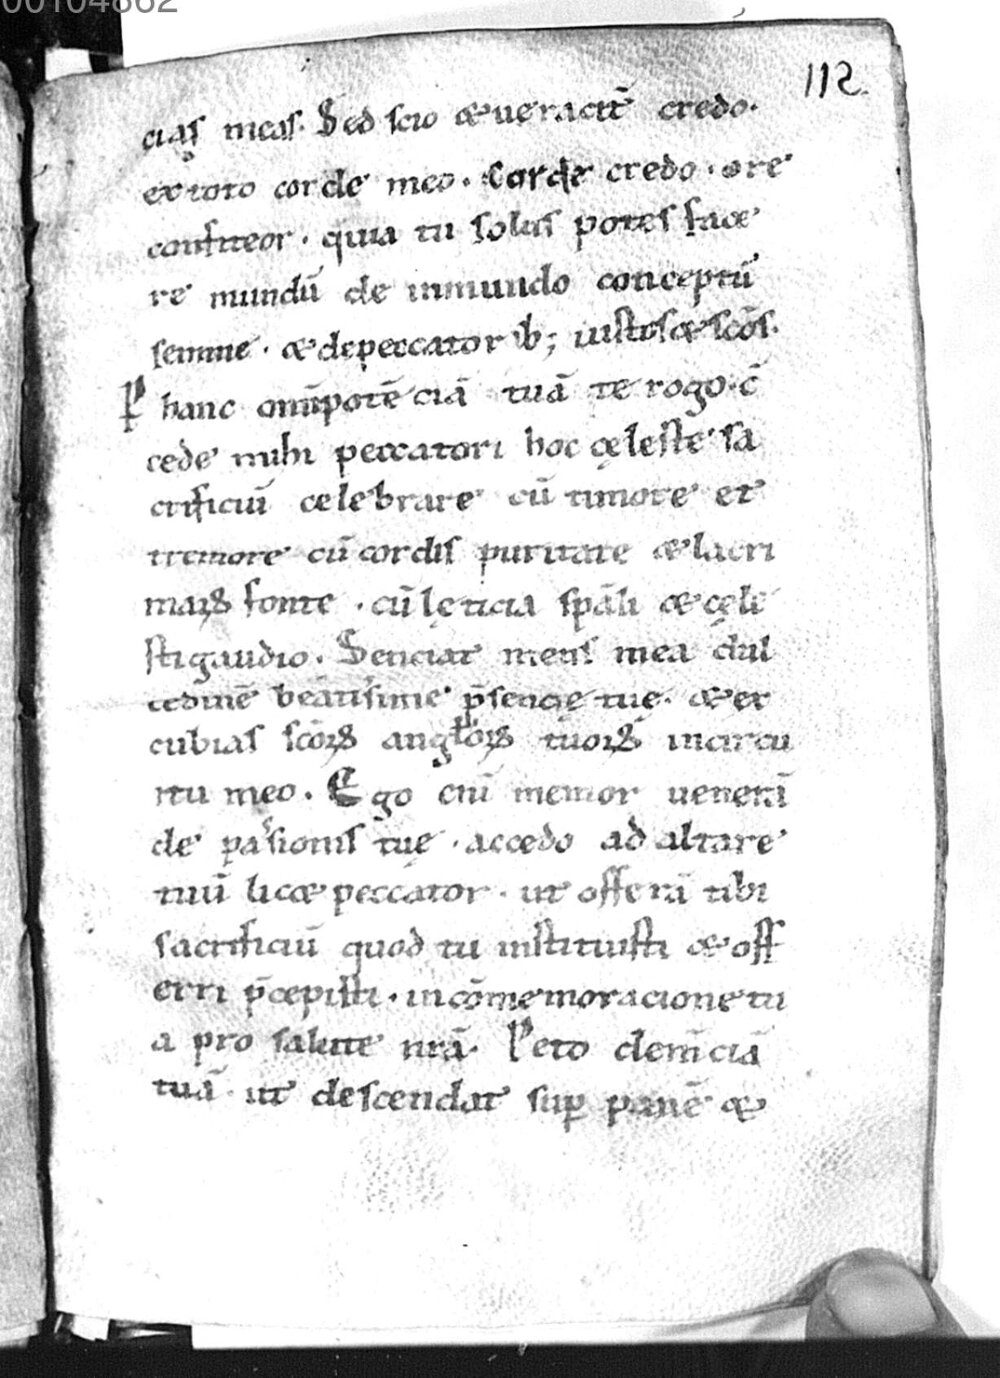 00104862
112.
cias meas. Sed scio & veracit̄ credo.
ex toto corde meo. Corde credo. ore
confiteor. quia tu solus potes face
re mundū de inmundo conceptū
semine. & de peccatorib; iustos & scōs.
P hanc omīpotē ciā tuā te rogo. c̄
cede mihi peccatori hoc cęleste sa
crificiū celebrare cū timore et
tremore cū cordis puritate & lacri
maꝝ fonte. cū lęticia spāli & cęle
sti gaudio. Senciat mens mea dul
cedinē beatisime p̄sencię tuę. & ex
cubias scōꝝ anglōꝝ tuoꝝ in circu
itu meo. Ego eni memor venerā
de pasionis tuę. accedo ad altare
tuū lic& peccator. ut offerā tibi
sacrificiū quod tu instituisti & off
erri p̄cepisti. in cōmemoracione tu
a pro salute nrā. Peto clem̄ciā
tuā. ut descendat suꝑ panē &